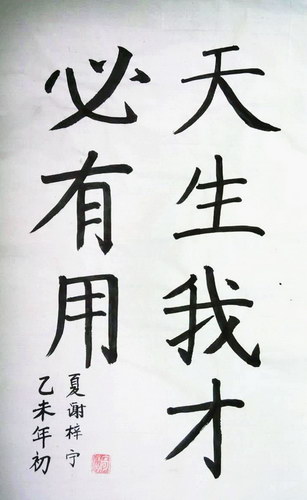 天生我才
必有用
夏谢梓宁
乙未年初